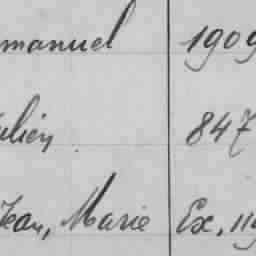 manuel 1909
ulien 847
Jean, Marie Ex, 119